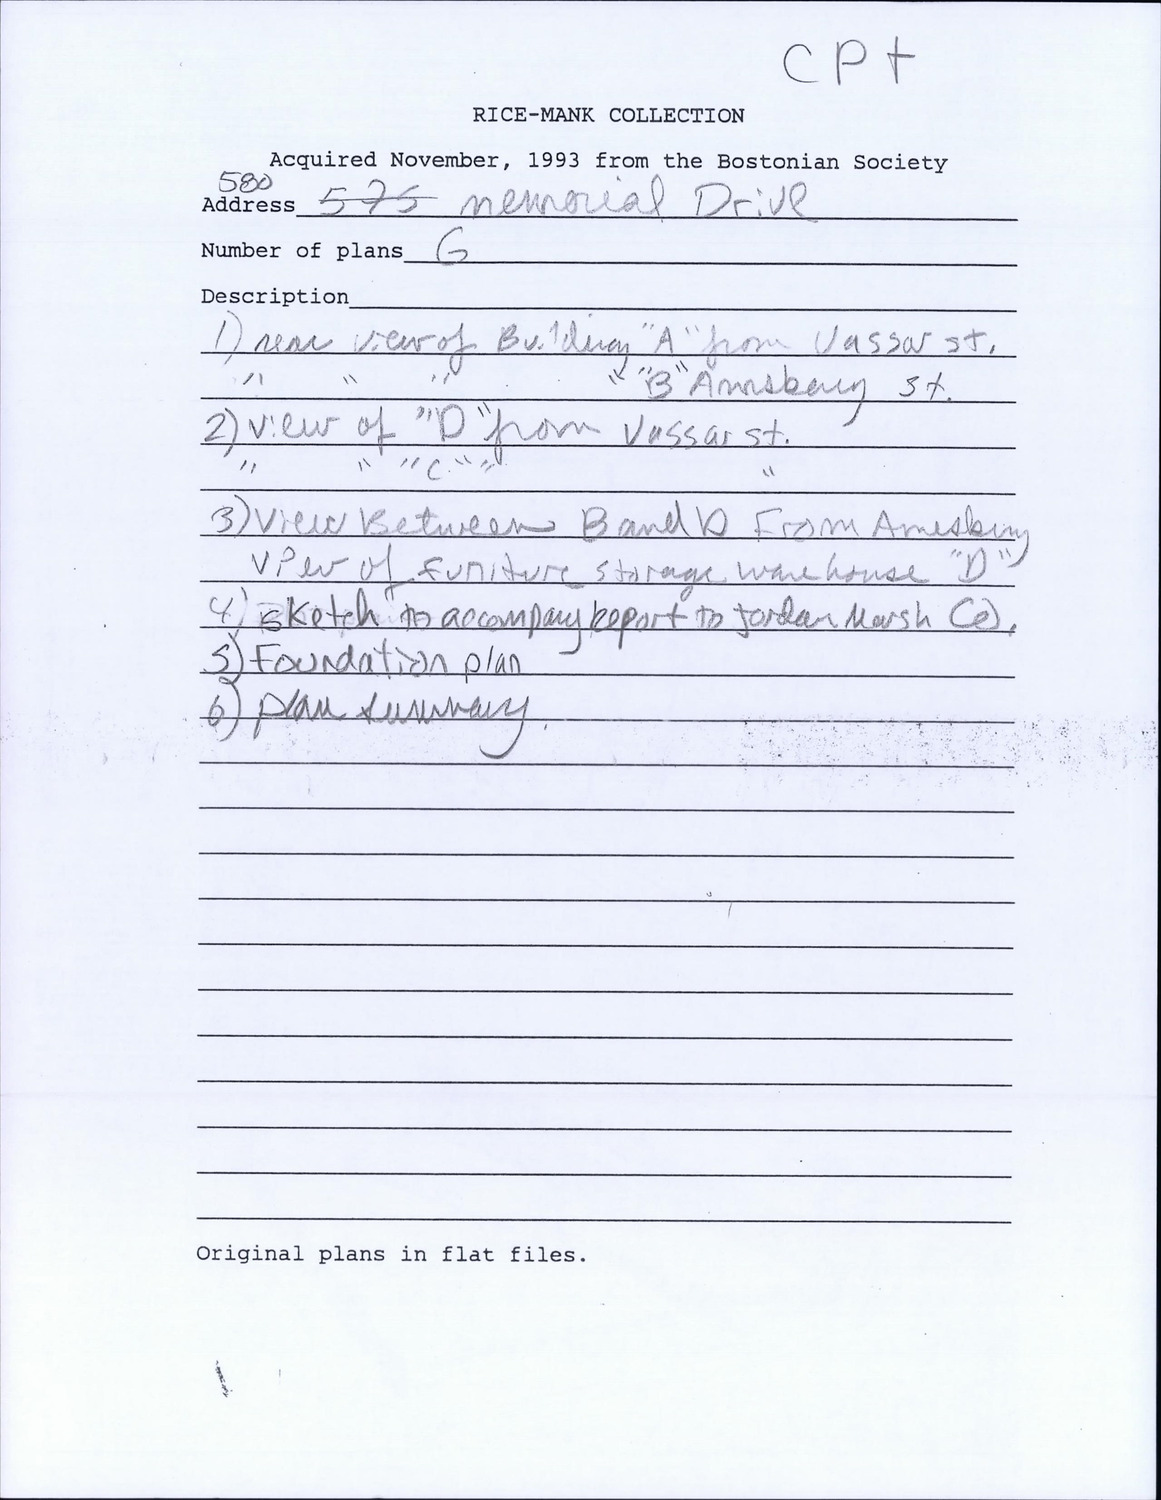 CPt
RICE-MANK COLLECTION
Acquired November, 1993 from the Bostonian Society
580
Address 575 memorial Drive
Number of plans 6
Description
1) rear view of Building "A" from Vassar st.
" " " " "B" Amesbury St.
2) view of "D" from Vassar st.
" " "C" " "
3) View Between B and D From Amesbury
View of Funiture storage warehouse "D"
4) sketch to accompany report to Jordan Marsh Co.
5) Foundation plan
6) plan summary.
Original plans in flat files.